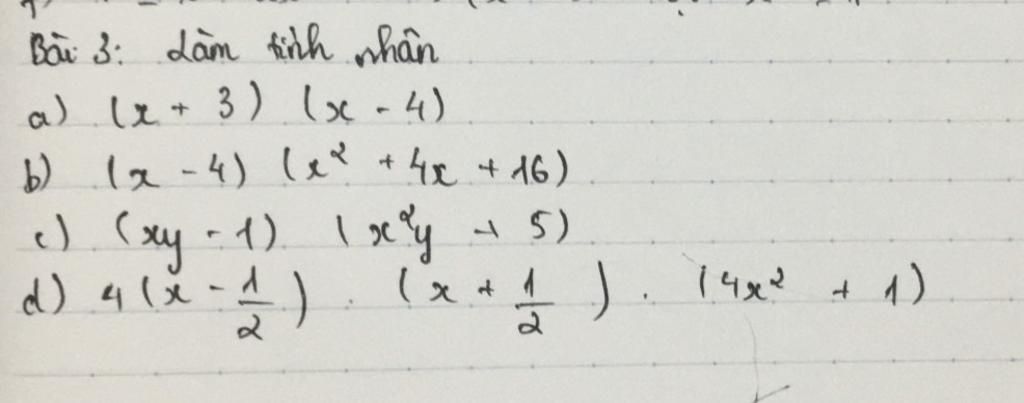 Bài 3: Làm tính nhân
a) (x + 3) (x - 4)
b) (x - 4) (x² + 4x + 16)
c) (xy - 1) (x²y + 5)
d) 4(x - 1/2) . (x + 1/2) . (4x² + 1)